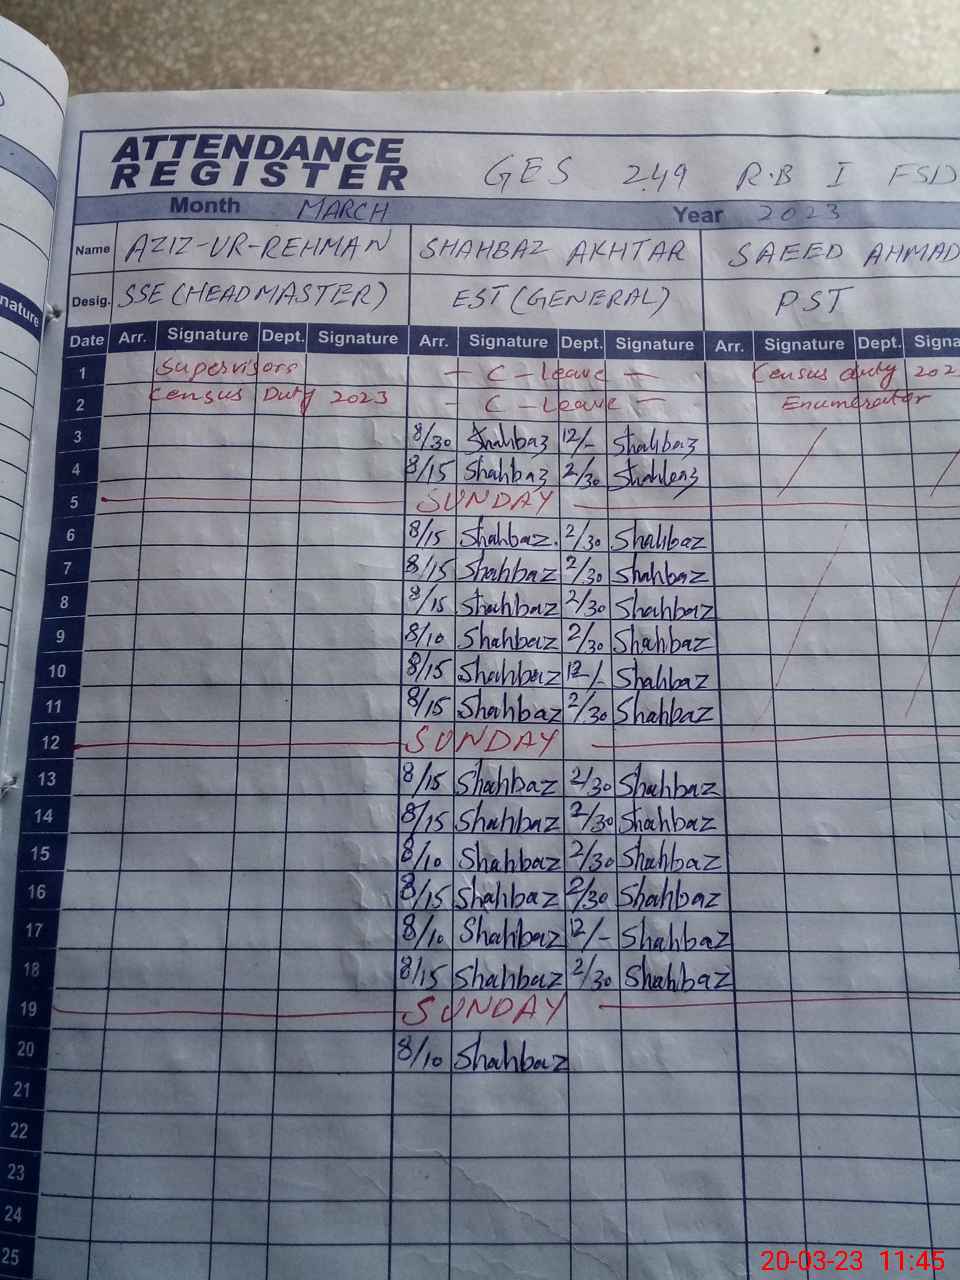 ATTENDANCE
REGISTER GES 249 R.B I FSD
Month MARCH Year 2023
Name AZIZ-UR-REHMAN SHAHBAZ AKHTAR SAEED AHMAD
Desig. SSE (HEADMASTER) EST (GENERAL) PST
nature
Date Arr. Signature Dept. Signature Arr. Signature Dept. Signature Arr. Signature Dept. Signa
1 Supervisors - C - Leave - Census duty 202
2 Census Duty 2023 - C - Leave - Enumerator
3 8/30 Shahbaz 12/- Shahbaz
4 8/15 Shahbaz 2/30 Shahbaz
5 SUNDAY
6 8/15 Shahbaz. 2/30 Shahbaz
7 8/15 Shahbaz 2/30 Shahbaz
8 8/15 Shahbaz 2/30 Shahbaz
9 8/10 Shahbaz 2/30 Shahbaz
10 8/15 Shahbaz 12/- Shahbaz
11 8/15 Shahbaz 2/30 Shahbaz
12 SUNDAY
13 8/15 Shahbaz 2/30 Shahbaz
14 8/15 Shahbaz 2/30 Shahbaz
15 8/10 Shahbaz 2/30 Shahbaz
16 8/15 Shahbaz 2/30 Shahbaz
17 8/10 Shahbaz 12/- Shahbaz
18 8/15 Shahbaz 2/30 Shahbaz
19 SUNDAY
20 8/10 Shahbaz
21
22
23
24
25
20-03-23 11:45